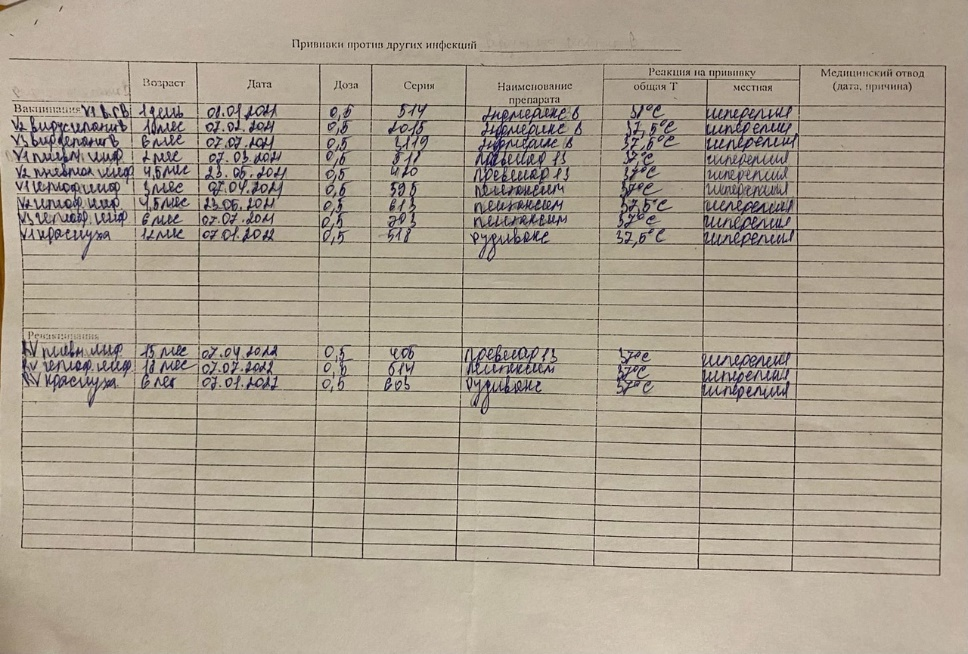 Прививки против других инфекций
Возраст Дата Доза Серия Наименование препарата Реакция на прививку Медицинский отвод
общая Т местная (дата, причина)
Вакцинация V1 в.ГВ 1 день 08.01.2021 0,5 514 Энджерикс В 37°C гиперемия
V2 вирусн.гепатит В 1 мес 07.02.2021 0,5 2015 Энджерикс В 37,5°C гиперемия
V3 вир.гепатит В 6 мес 07.07.2021 0,5 Энджерикс В 37,5°C гиперемия
V1 пневм. инф 2 мес 07.03.2021 0,5 511 Превенар 13 37°C гиперемия
V2 пневмок инф 4,5 мес 23.05.2021 0,5 420 Превенар 13 37°C гиперемия
V1 гемоф инф 3 мес 07.04.2021 0,5 595 пентаксим 37°C гиперемия
V2 гемоф. инф 4,5 мес 0,5 613 пентаксим 37,5°C гиперемия
V3 гемоф. инф 6 мес 07.07.2021 0,5 703 пентаксим 37°C гиперемия
V1 краснуха 12 мес 07.01.2022 0,5 518 рудивакс 37,5°C гиперемия
Ревакцинация
RV пневм. инф 15 мес 07.04.2022 0,5 406 Превенар 13 37°C гиперемия
RV гемоф. инф 18 мес 07.07.2022 0,5 614 пентаксим 37°C гиперемия
RV краснуха 6 лет 07.01.2027 0,5 603 рудивакс 37°C гиперемия